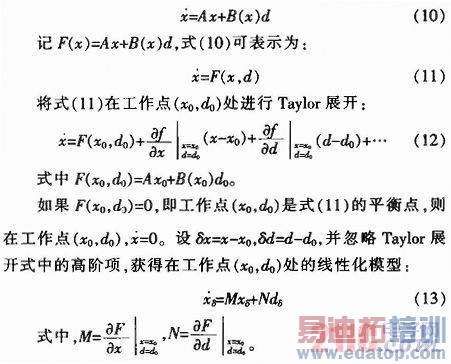 ẋ=Ax+B(x)d (10)
记 F(x)=Ax+B(x)d,式(10)可表示为:
ẋ=F(x,d) (11)
将式(11)在工作点(x₀,d₀)处进行 Taylor 展开:
ẋ=F(x₀,d₀)+∂f/∂x|x=x₀ d=d₀ (x-x₀)+∂f/∂d|x=x₀ d=d₀ (d-d₀)+⋯ (12)
式中 F(x₀,d₀)=Ax₀+B(x₀)d₀。
如果 F(x₀,d₀)=0,即工作点(x₀,d₀)是式(11)的平衡点,则
在工作点(x₀,d₀),ẋ=0。设 δx=x-x₀,δd=d-d₀,并忽略 Taylor 展
开式中的高阶项,获得在工作点(x₀,d₀)处的线性化模型:
ẋδ=Mxδ+Ndδ (13)
式中,M=∂F/∂x|x=x₀ d=d₀,N=∂F/∂d|x=x₀ d=d₀。
易迪拓培训
www.edatop.com